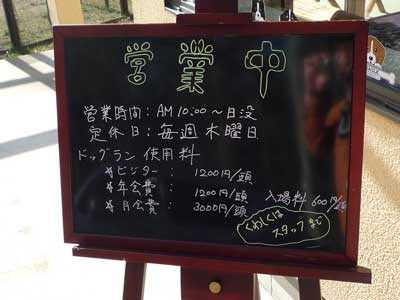 営業中
営業時間：AM10:00～日没
定休日：毎週木曜日
ドッグラン使用料
＊ビジター：1200円/頭
＊年会費：1200円/頭
＊月会費：3000円/頭
入場料600円/頭
くわしくは
スタッフまで